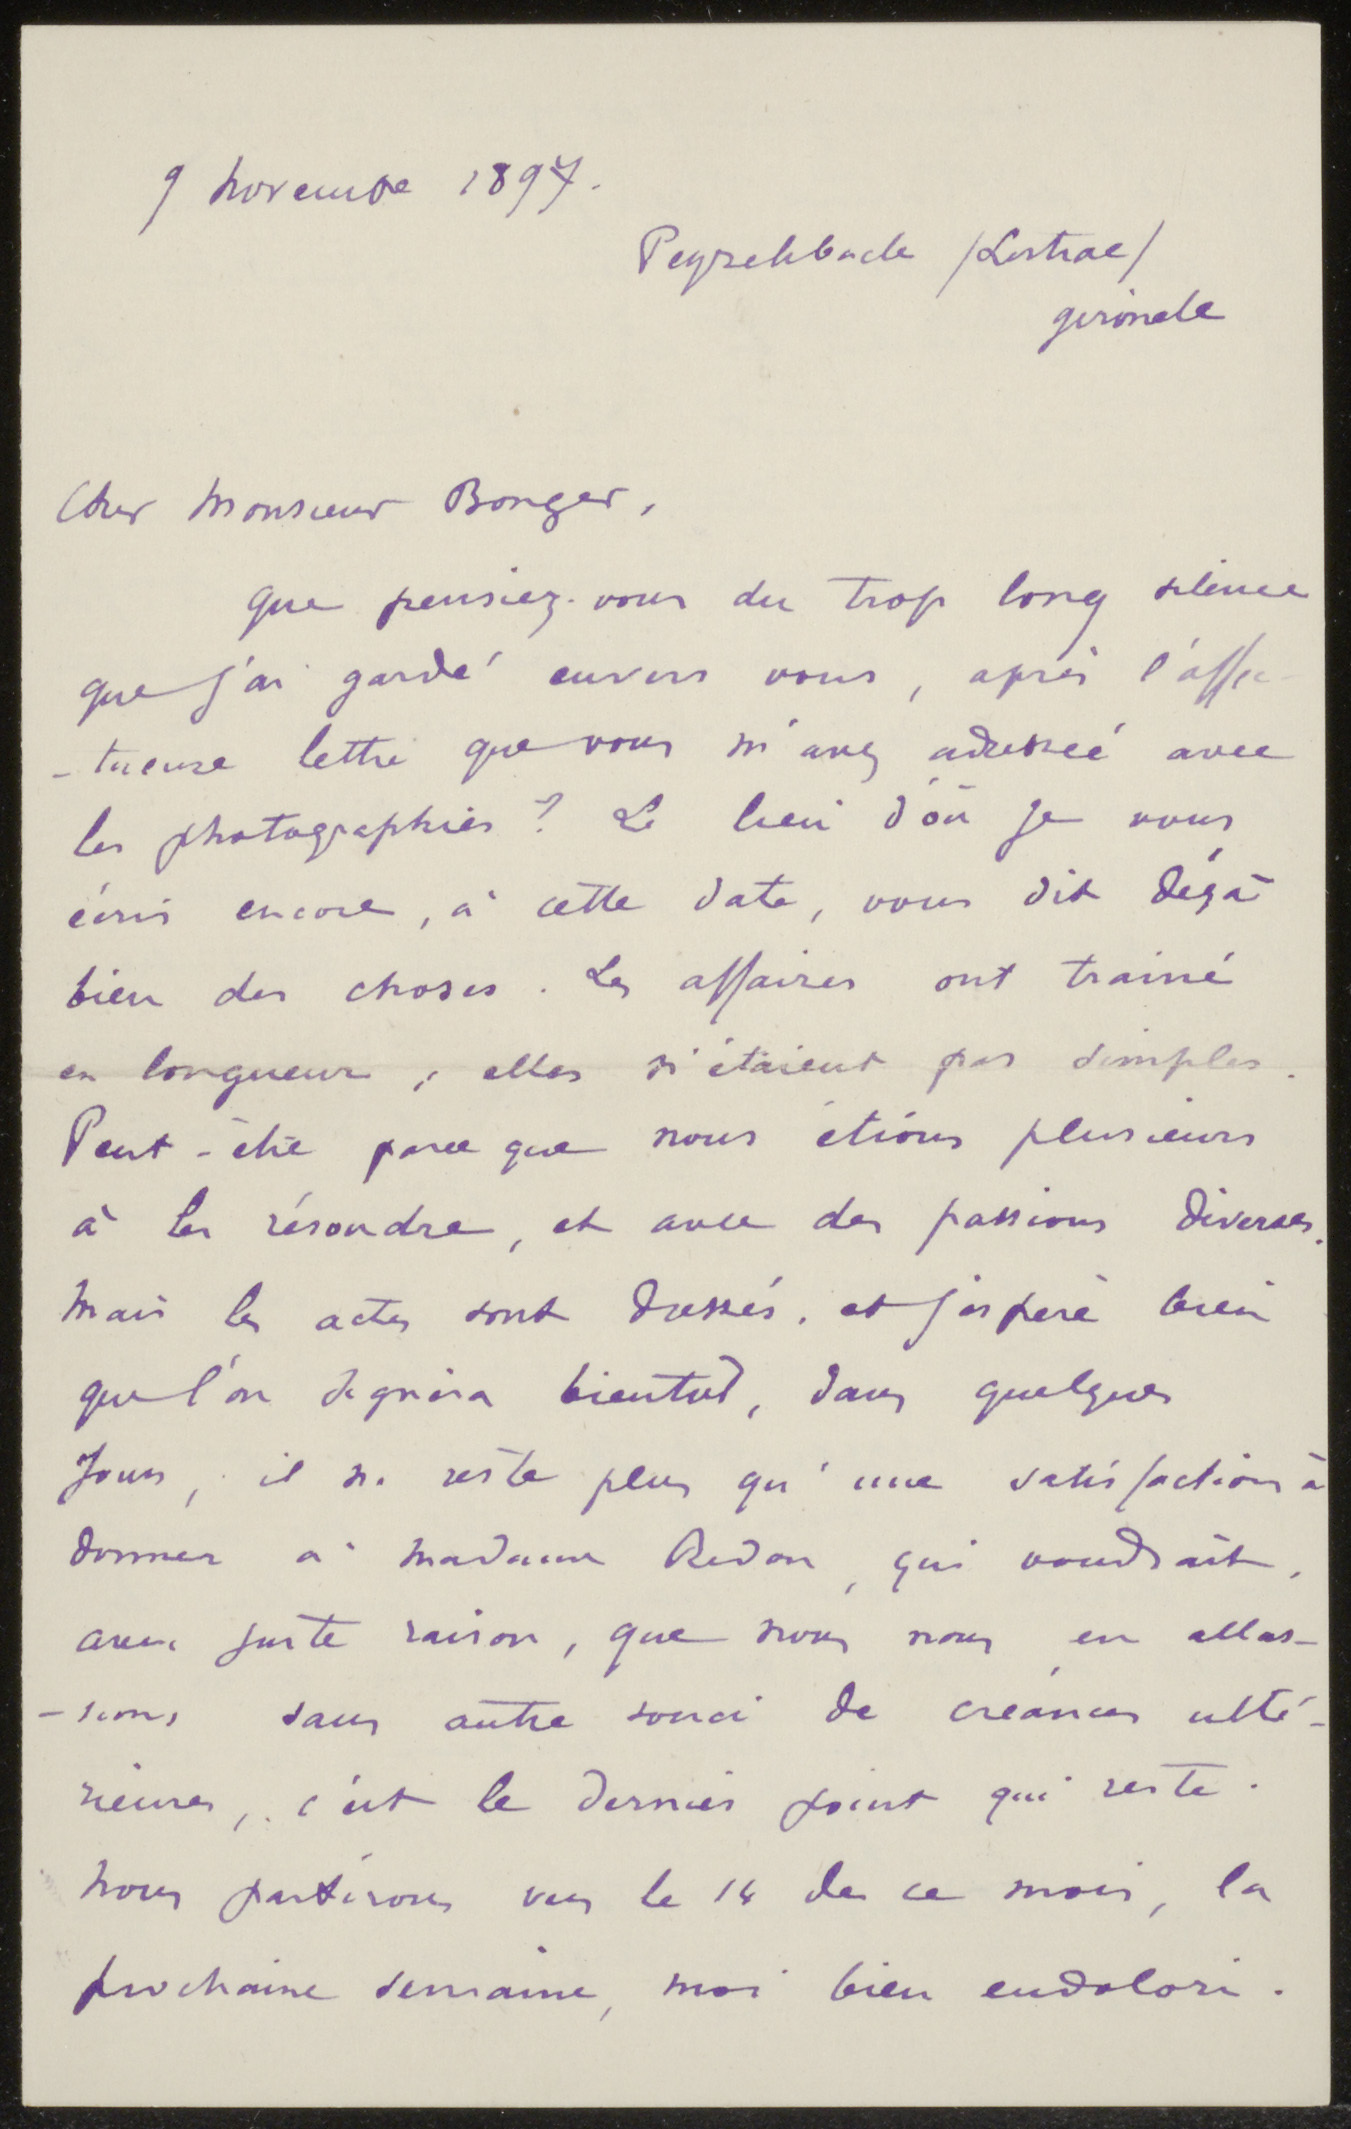 9 novembre 1897.
Peyrelebade /Listrac/
gironde
Cher Monsieur Bonger,
que pensiez-vous du trop long silence
que j'ai gardé envers vous, après l'affec-
-tueuse lettre que vous m'avez adressée avec
les photographies ? Le lieu d'où je vous
écris encore, à cette date, vous dit déjà
bien des choses. Les affaires ont trainé
en longueur ; elles n'étaient pas simples.
Peut-être parce que nous étions plusieurs
à les résoudre, et avec des passions diverses.
Mais les actes sont dressés. et j'espère bien
que l'on signera bientôt, dans quelques
jours, il ne reste plus qu'une satisfaction à
donner à madame Redon, qui voudrait,
avec juste raison, que nous nous en allas-
-sions sans autre souci de créances ulté-
rieures, c'est le dernier point qui reste.
Nous partirons vers le 14 de ce mois, la
prochaine semaine, moi bien endolori.